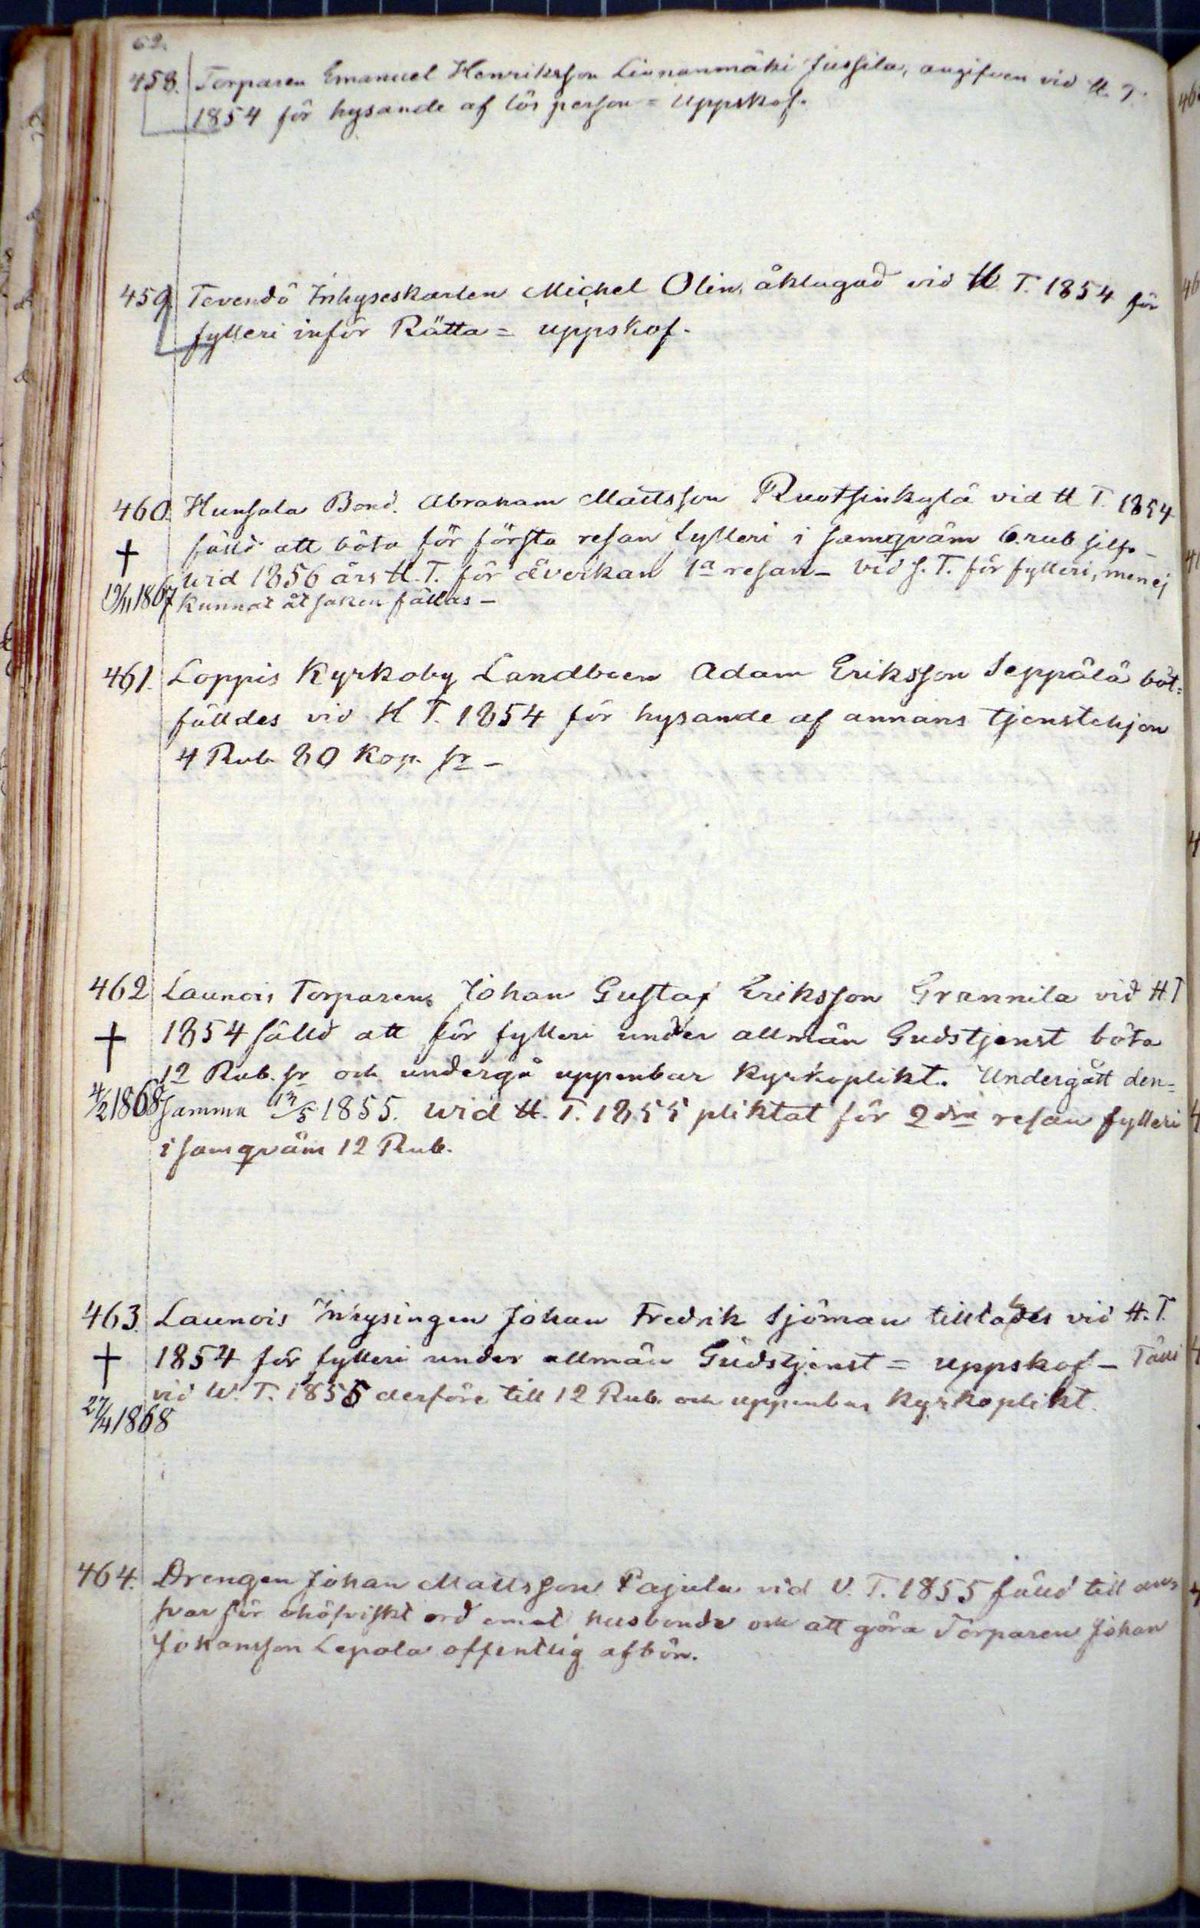 62.
458. Torparen Emanuel Henriksson Linnanmäki Jussila, angifven vid H. T.
1854 för hysande af lös person = uppskof.
459 Tevendö Inhyseskarlen Michel Olin, åklagad vid H T. 1854 för
fylleri inför Rätta = uppskof.
460. Hunsala Bond. Abraham Mattsson Ruotsinkylä vid H T. 1854
† fälld att böta för första resan fylleri i samqväm 6. rub silfr –
wid 1856 års H. T. för åverkan 1a resan – vid s. T. för fylleri, men ej
1867 kunnat åt saken fällas –
461. Loppis Kyrkoby Landboen Adam Eriksson Seppälä böt=
fälldes vid H T. 1854 för hysande af annans tjenstehjon
4 Rub. 80 Kop. sr –
462 Launois Torparen Johan Gustaf Eriksson Grannila vid H T
† 1854 fälld att för fylleri under allmän Gudstjenst böta
12 Rub. sr och undergå uppenbar Kyrkoplikt. Undergått den=
4/2 1868 samma 13/5 1855. Wid H. T. 1855 pliktat för 2dra resan fylleri
i samqväm 12 Rub.
463. Launois Inhysingen Johan Fredrik Sjöman tilltalades vid H. T.
† 1854 för fylleri under allmän Gudstjenst = uppskof – Fälld
vid W. T. 1855 derföre till 12 Rub. och uppenbar Kyrkoplikt.
27/4 1868
464. Drengen Johan Mattsson Pajula vid V. T. 1855 fälld till an=
svar för ohöfviskt ord emot husbonde och att göra Torparen Johan
Johansson Lepola offentlig afbön.